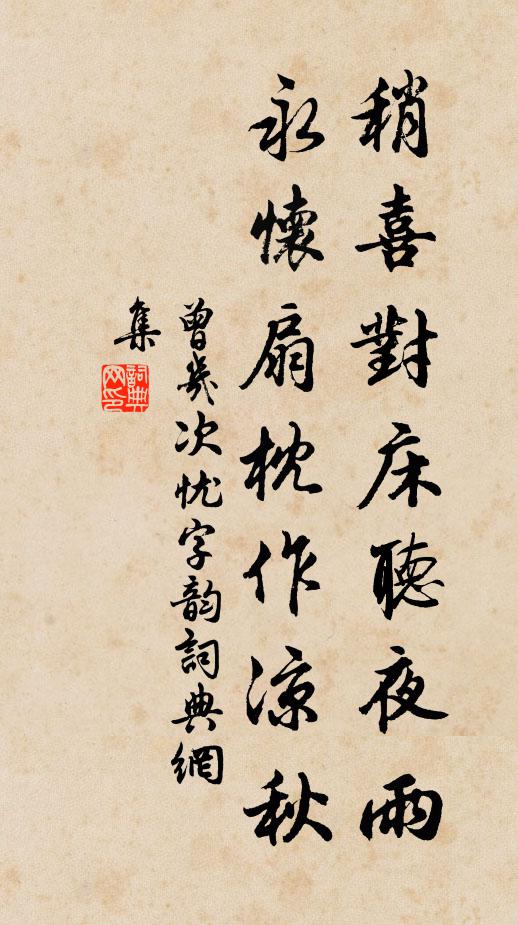 稍喜對床聽夜雨
永懷扇枕作涼秋
曾幾次忧字韵詞典網
集
詞典網印